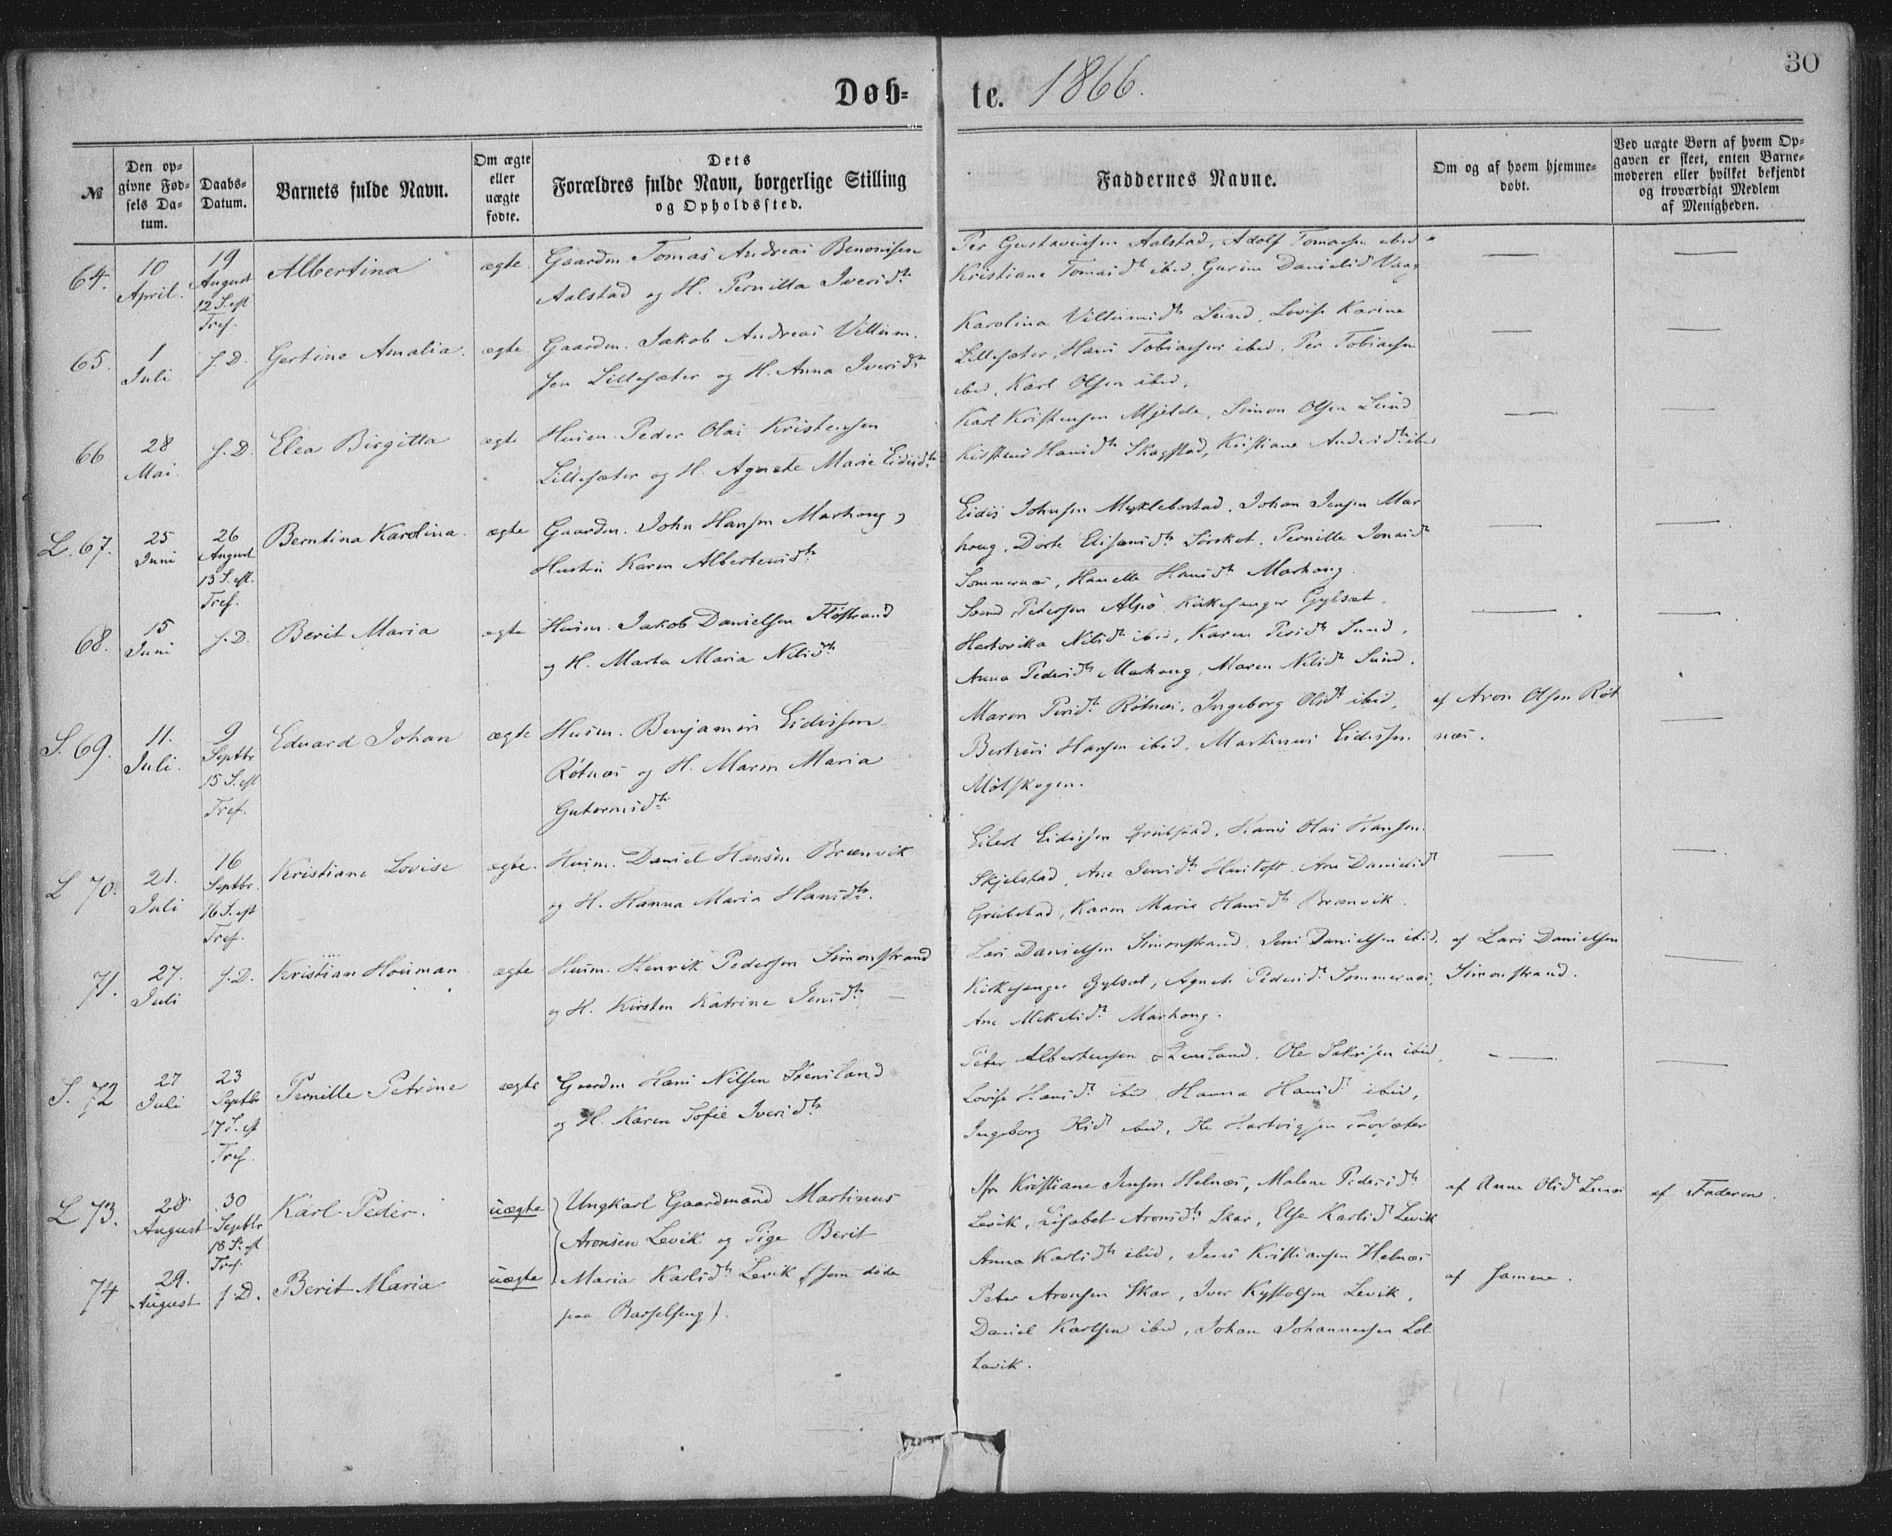 Døb-
te. 1866.
30
№
Den op-
givne Fød-
sels Da-
tum.
Daabs-
Datum.
Barnets fulde Navn.
Om ægte
eller
uægte
fødte.
Dets
Forældres fulde Navn, borgerlige Stilling
og Opholdssted.
Faddernes Navne.
Om og af hvem hjemme-
døbt.
Ved uægte Børn af hvem Op-
gaven er skeet, enten Barne-
moderen eller hvilket bekjendt
og troværdigt Medlem
af Menigheden.
64.
10
April.
19
August
12 S. eft
Tref.
Albertina
ægte.
Gaardm. Tomas Andreas Benonisen
Aalstad og H. Pernilla Iversdtr
Per Gustavinsen Aalstad, Adolf Tomasen ibid
Kristiane Tomasdtr ibid, Danielsd Vaag
65.
1
Juli.
s. D.
Gertine Amalia.
ægte.
Gaardm. Jakob Andreas Villum-
sen Lillesæter og H. Anna Iversdtr
Karolina Villumsdtr Lund, Lovise Karine
Lillesæter, Hans Tobiassen ibid, Per Tobiassen
ibid, Karl Olsen ibid.
66.
28
Mai.
s. D.
Elea Birgitta
ægte
Husm. Peder Olai Kristensen
Lillesæter og H. Agnete Marie Eidisdtr
Karl Kristensen Mjelde, Simon Olsen Lund
Hansdtr Skagstad, Kristiane Andersdtr ibid
L. 67.
25
Juni
26
August
13 S. eft.
Tref.
Berntina Karolina.
ægte
Gaardm. John Hansen Marhaug og
Hustru Karen Albertsendtr
Eidis Johnsen Myklebostad, Johan Jensen Mar
haug, Dorte Sørskot, Pernille Jonasdtr
Sommernæs, Hansdtr Marhaug.
68.
15
Juni
s. D.
Berit Maria
ægte
Husm. Jakob Danielsen Fløstrand
og H. Marta Maria Nilsdtr
Petersen Alsø, Kirkesanger Gylset,
Hartvika Nilsdtr ibid, Karen Persdtr Lund,
Anna Pedersdtr Marhaug, Maren Nilsdtr Lund.
S. 69.
11.
Juli.
9
Septbr
15 S. eft
Tref.
Eduard Johan
ægte
Husm. Benjamin Eidissen
Røtnæs og H. Maren Maria
Gutormsdtr
Maren Persdtr Røtnæs, Ingeborg Olsdtr ibid,
Hansen ibid, Martinus Eidissen
Møtskogen.
af Aron Olsen Røt
næs.
L. 70.
21.
Juli
16
Septbr.
16 S. eft
Tref.
Kristiane Lovise
ægte.
Husm. Daniel Hansen Brænvik
og H. Hanna Maria Hansdtr.
Eilert Eidissen Grubstad, Hans Olai Hansen
Skjelstad, Ane Jensdtr Ane Danielsdtr
Grubstad, Karen Marie Hansdtr Brænvik.
71.
27.
Juli
s. D.
Kristian Houman
ægte
Husm. Henrik Pedersen Simonstrand
og H. Kirsten Katrine Jensdtr
Lars Danielsen Simonstrand, Jens Danielsen ibid,
Kirkesanger Gylset, Agnete Pedersdtr Sommernæs,
Ane Mikelsdtr Marhaug.
af Lars Danielsen
Simonstrand.
S. 72
27
Juli
23
Septbr
17 S. eft
Tref.
Pernille Petrine
ægte
Gaardm Hans Nilsen Stensland
og H. Karen Sofie Iversdtr
Peter Albertsen Stensland, Ole ibid
Lovise Hansdtr ibid, Hanna Hansdtr ibid,
Ingeborg ibid, Ole Hartvigsen
L 73.
28
August
30
Septbr
18 S. eft
Tref.
Karl Peder.
uægte
Ungkarl Gaardmand Martinus
Aronsen Levik og Pige Berit
Kristiane Jensen Helnæs, Malene Pedersdtr
Levik, Lisabet Aronsdtr Skar, Else Karlsdtr Levik
af Anne Olsdtr
af Faderen.
74
29.
August
s. D.
Berit Maria
uægte
Maria Karlsdtr Levik (som døde
paa Barselseng).
Anna Karlsdtr ibid, Jens Kristiansen Helnæs
Peter Aronsen Skar, Iver Levik,
Daniel Karlsen ibid, Johan Johannessen Lol
lavik.
af Samme.